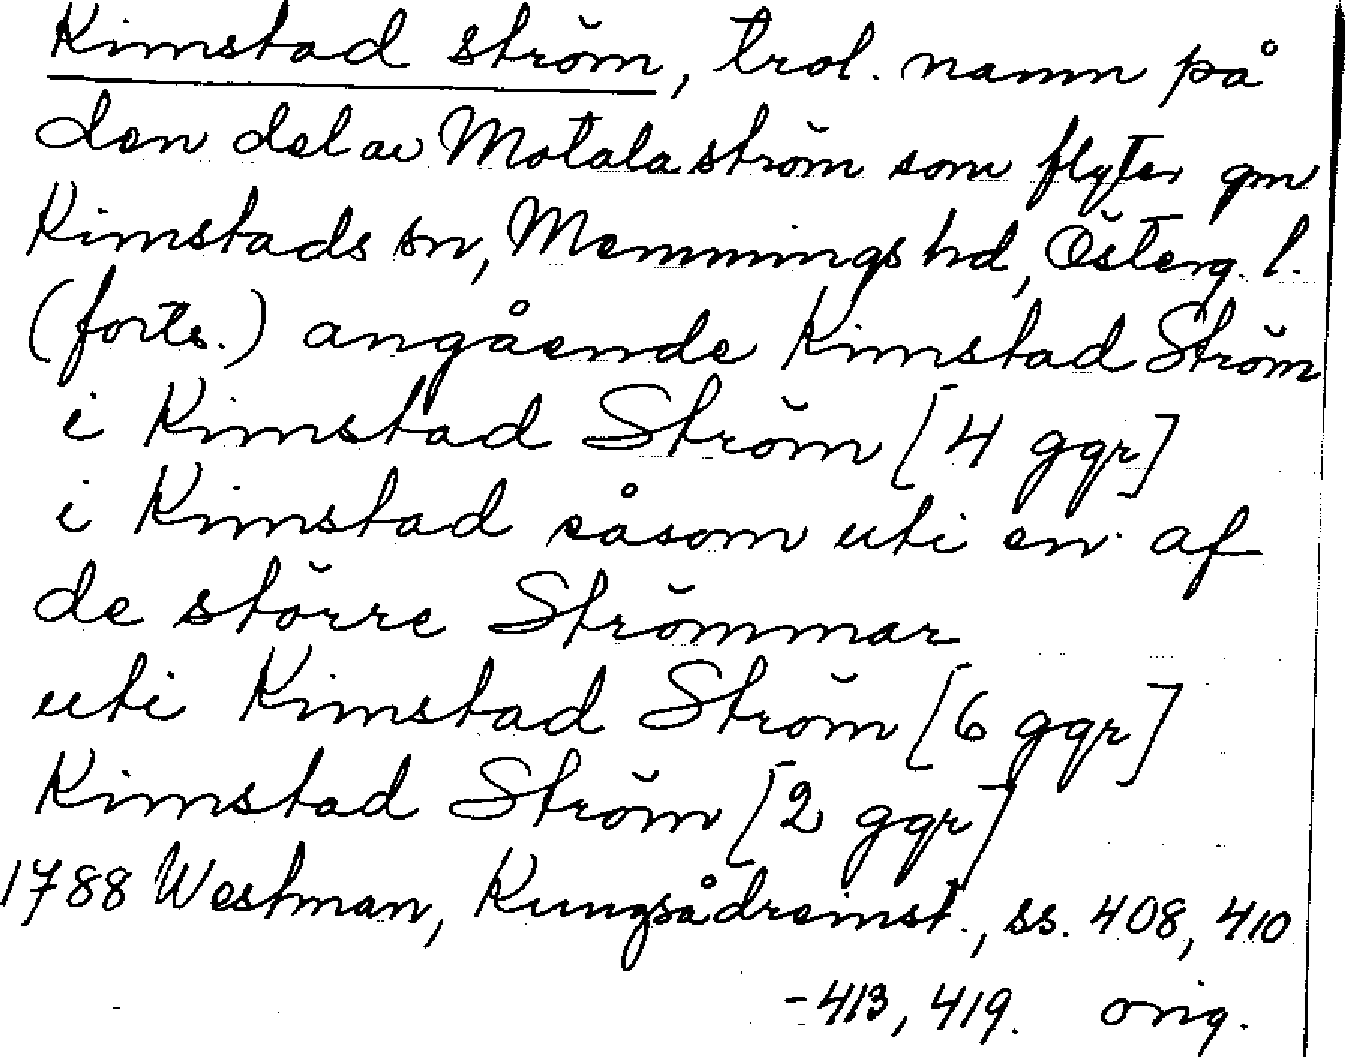 Kimstad ström, trol. namn på
den del av Motala ström som flyter gm
Kimstads sn, Memmings hd, Österg. l.
(forts.) angående Kimstad Ström
i Kimstad Ström [4 ggr]
i Kimstad såsom uti en af
de större Strömmar
uti Kimstad Ström [6 ggr]
Kimstad Ström [2 ggr]
1788 Westman, Kungsådreinst., ss. 408, 410
-413, 419. orig.